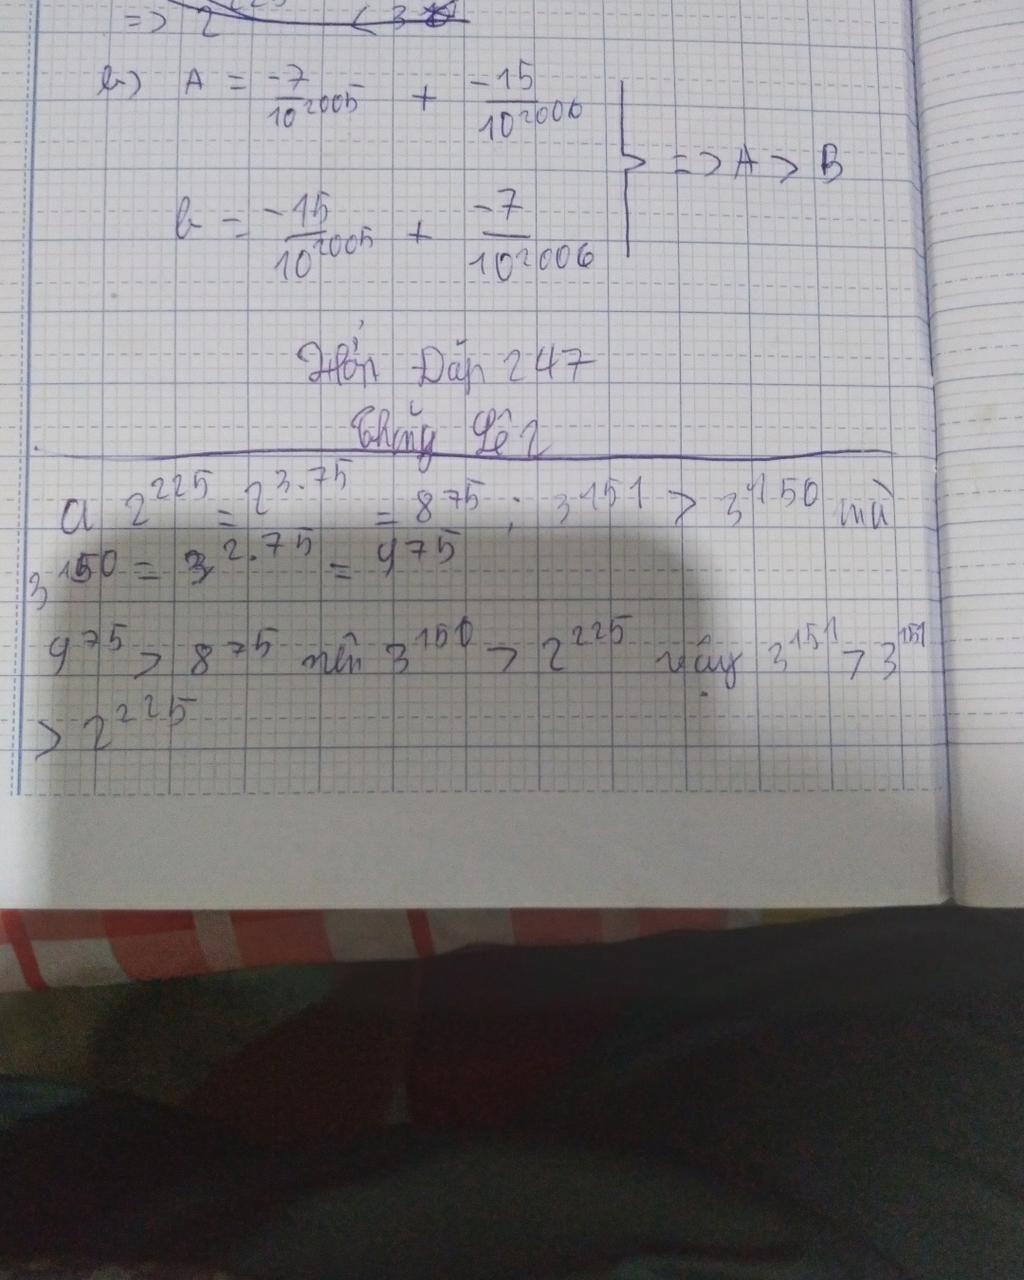 => 2 < 3
b) A = -7/10^2005 + -15/10^2006
=> A > B
b = -15/10^2005 + -7/10^2006
Hỏi Đáp 247
Thủy Lê 2
a 2^225 = 2^3.75 = 8^75 ; 3^151 > 3^150 mà
3^150 = 3^2.75 = 9^75
9^75 > 8^75 nên 3^150 > 2^225 vậy 3^151 > 3^151
> 2^225